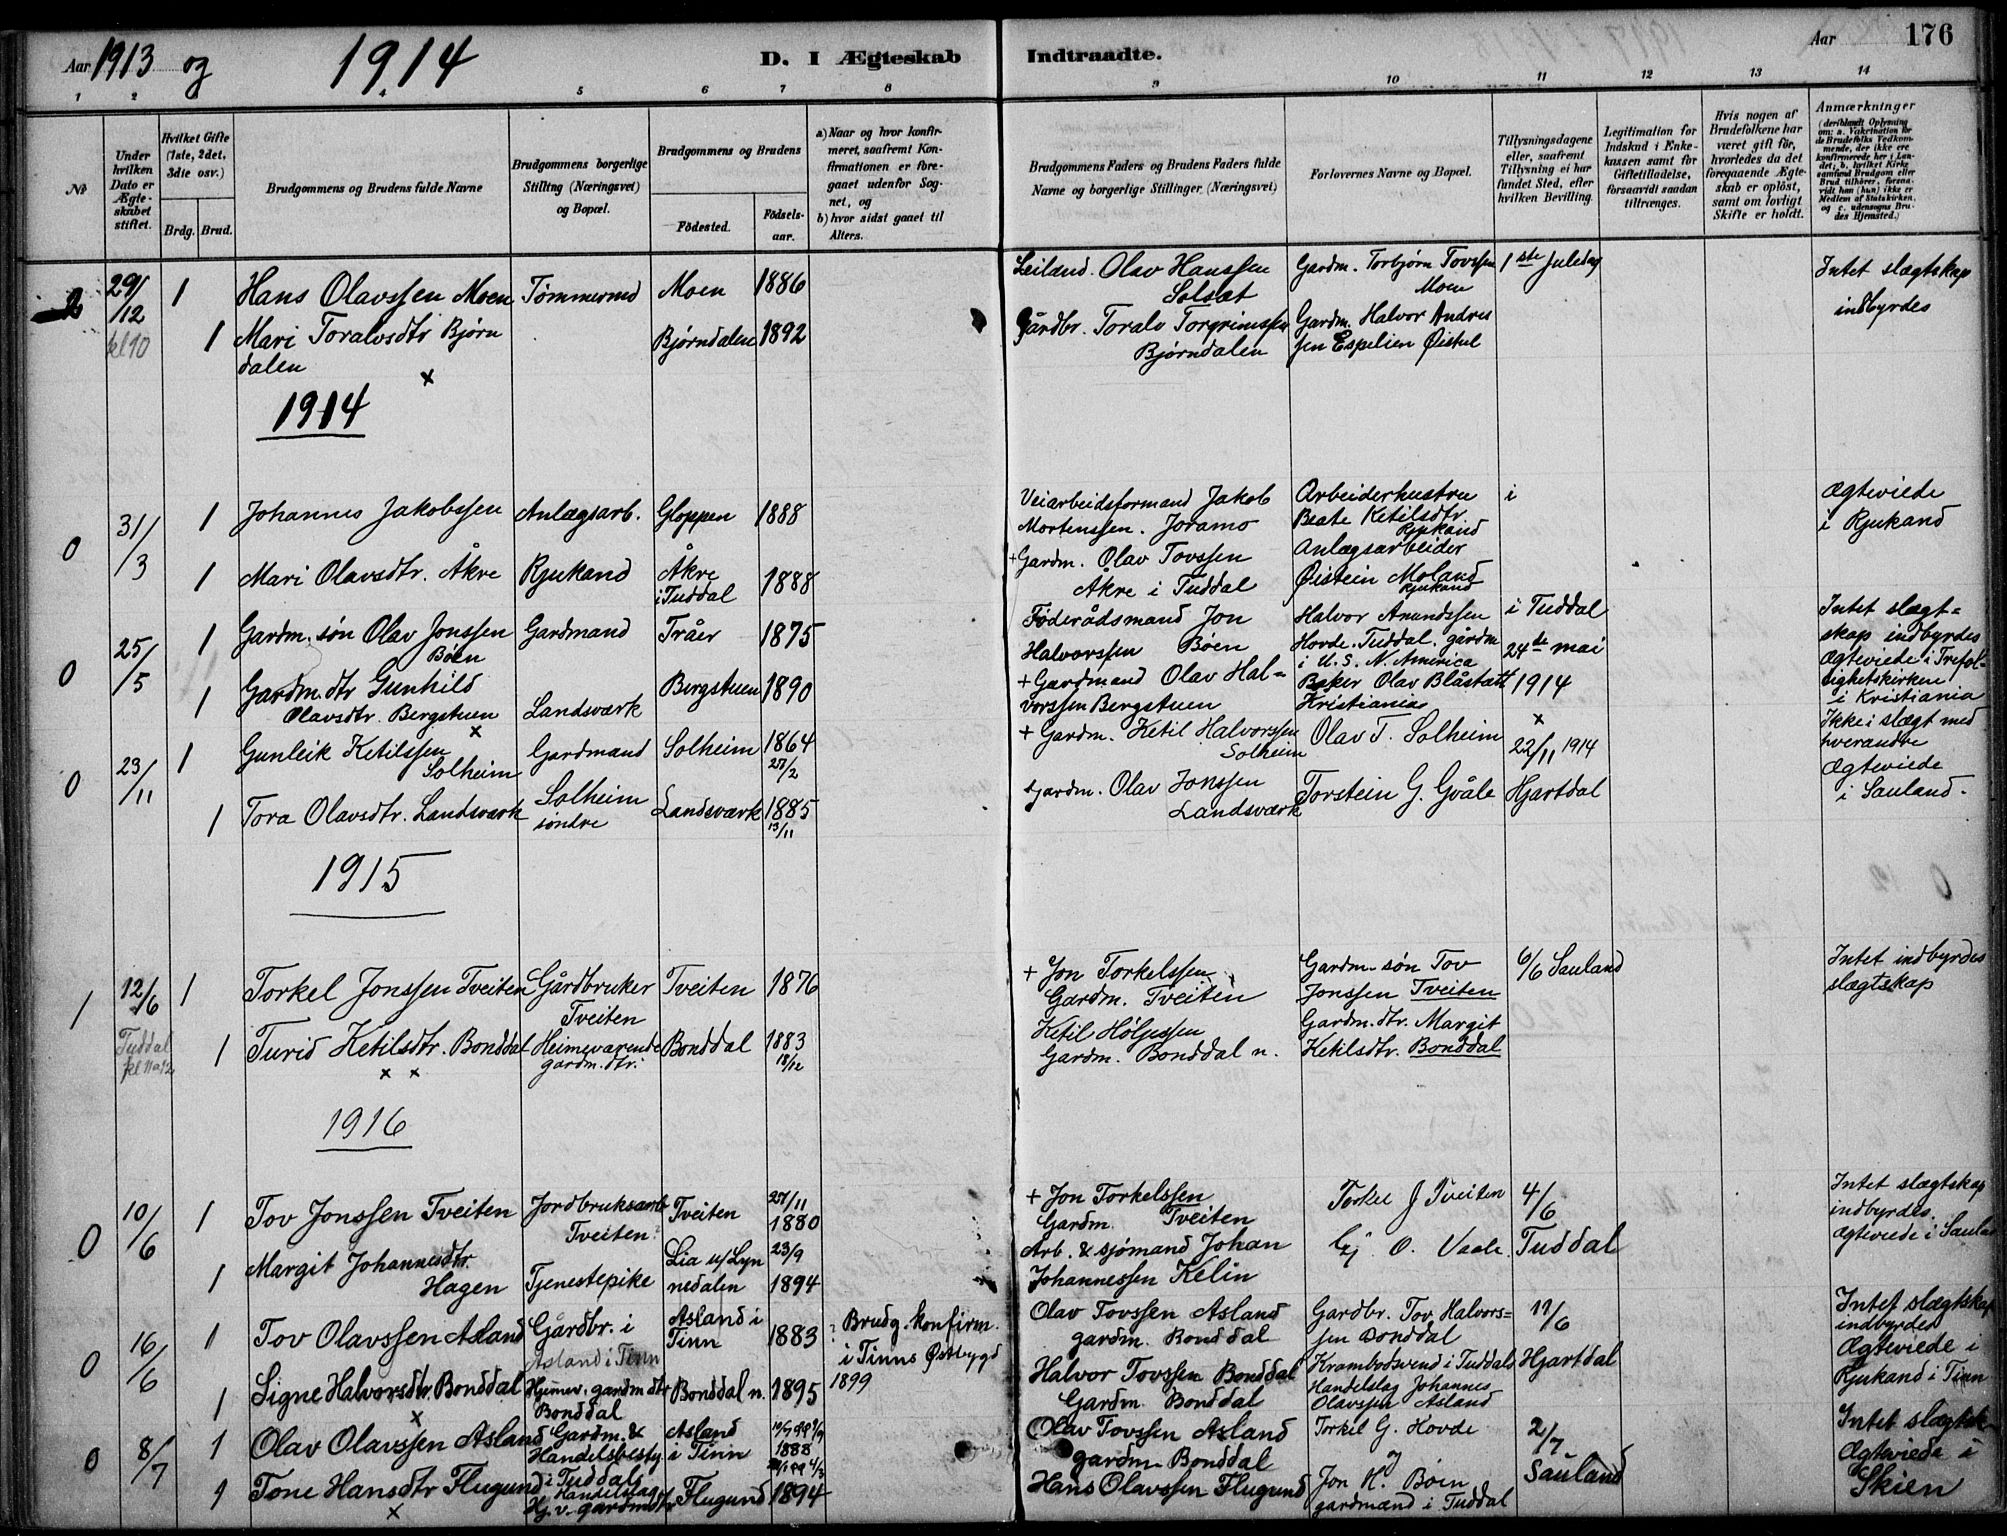 Aar 1913 og 1914
D. I Ægteskab Indtraadte.
Aar 176
1 2 4 5 6 7 8 9 10 11 12 13 14
No
Under hvilken Dato er Ægteskabet stiftet.
Hvilket Gifte (1ste, 2det, 3die osv.)
Brdg. Brud.
Brudgommens og Brudens fulde Navne
Brudgommens borgerlige Stilling (Næringsvei) og Bopæl.
Brudgommens og Brudens
Födested.
Födsels-aar.
a) Naar og hvor konfirmeret, saafremt Konfirmationen er foregaaet udenfor Sognet, og
b) hvor sidst gaaet til Alters.
Brudgommens Faders og Brudens Faders fulde Navne og borgerlige Stillinger (Næringsvei)
Forlovernes Navne og Bopæl.
Tillysningsdagene eller, saafremt Tillysning ei har fundet Sted, efter hvilken Bevilling.
Legitimation for Indskud i Enkekassen samt for Giftetilladelse, forsaavidt saadan tiltrænges.
Hvis nogen af Brudefolkene har været gift för, hvorledes da det foregaaende Ægteskab er oplöst, samt om lovligt Skifte er holdt.
Anmærkninger
(deriblandt Oplysning om: a. Vakcination for de Brudefolks Vedkommende, der ikke ere konfirmerede her i Landet; b. hvilket Kirkesamfund Brudgom eller Brud tilhörer, forsaavidt han (hun) ikke er Medlem af Statskirken, og c. udensogns Brudes Hjemsted.)
2 29/12 1 Hans Olavssen Moen Tømmermd Moen 1886
Olav Hanssen Solsæt
Gardm. Torbjørn Tovssen Moen
1ste Juledag
Intet slægtskap indbyrdes
kl 10 1 Mari Toralvsdtr Bjørndalen Bjørndalen 1892
Gårdbr. Toralv Torgrimssen Bjørndalen
Gardm. Halvor Andressen Espelien
x
1914
0 31/3 1 Johannes Jakobssen Anlægsarb. Gloppen 1888
Veiarbeidsformand Jakob Mortenssen. Joramo
Arbeiderhustru Beate Ketilsdtr. Rjukand
i
Ægteviede i Rjukand
1 Mari Olavsdtr. Åkre Rjukand Åkre i Tuddal 1888
+ Gardm. Olav Tovssen Åkre i Tuddal
Anlægsarbeider Øistein Moland Rjukand
0 25/5 1 Gardm. søn Olav Jonssen Bøen Gardmand Tråer 1875
Føderådsmand Jon Halvorssen Bøen
Halvor Anundssen Hovde. Tuddal. gårdm i U.S. N. America
i Tuddal 24de mai 1914
Intet slægtskap indbyrdes
Ægteviede i Trefoldighetskirken i Kristiania
1 Gardm. dtr Gunhild Olavsdtr. Bergstuen Landsværk Bergstuen 1890
+ Gardmand Olav Halvorssen Bergstuen
Baker Olav Blåstatt Kristiania
x
0 23/11 1 Gunleik Ketilssen Solheim Gardmand Solheim 1864 27/2
+ Gardm. Ketil Halvorssen Solheim
Olav T. Solheim
x
22/11 1914
Ikke i slægt med hverandre
Ægteviede i Sauland.
1 Tora Olavsdtr. Landsværk Solheim søndre Landsværk 1885 13/11
Gardm. Olav Jonssen Landsværk
Torstein G. Gvåle
Hjartdal
1915
1 12/6 1 Torkel Jonssen Tveiten Gårdbruker Tveiten Tveiten 1876
+ Jon Torkelssen Gardm. Tveiten
Gardm. søn Tov Jonssen Tveiten
6/6 Sauland
Intet indbyrdes slægtskap
Tuddal kl 11 a 12
1 Turid Ketilsdtr. Bonddal Heimeværende gårdm. dtr. Bonddal 1883 18/12
Ketil Høljessen Gardm. Bonddal n.
Gardm. dtr. Margit Ketilsdtr. Bonddal
x x
1916
0 10/6 1 Tov Jonssen Tveiten Jordbruksarb Tveiten Tveiten 27/11 1880
+ Jon Torkelssen Gardm. Tveiten
Torkel J Tveiten
4/6 Tuddal
Intet slægtskap indbyrdes.
Ægteviede i Sauland
1 Margit Johannesdtr. Hagen Tjenestepike Lia u/ Lynnedalen 23/9 1894
Arb. & sjømand Johan Johannessen Kelin
O. Vaale.
0 16/6 1 Tov Olavssen Asland Gårdbr. i Asland i Tinn Asland i Tinn 1883
Brudg. konfirm. i Tinns Østbygd 1899
Olav Tovssen Asland gardm. Bonddal
Gardbr. Tov Halvorssen Bonddal
11/6 Hjartdal
Intet slægtskap indbyrdes
Ægteviede i Rjukand i Tinn
1 Signe Halvorsdtr. Bonddal Hjemev. gardm dtr Bonddal Bonddal n. 1895
Halvor Tovssen Bonddal Gardm. Bonddal
Krambodsvend i Tuddals Handelslag Johannes Olavssen Asland
x
0 8/7 1 Olav Olavssen Asland Gardm. & Handelsbesty. i Tuddals Handelslag Asland i Tinn 1888
Olav Tovssen Asland gardm. Bonddal
Torkel G. Hovde
2/7 Sauland
Intet slægtsk.
Ægteviede i Skien
1 Tone Hansdtr Flugund Hj. v. gardmdtr Flugund 1894
Hans Olavssen Flugund
Jon H. Bøen gardmænd i Tuddal
x